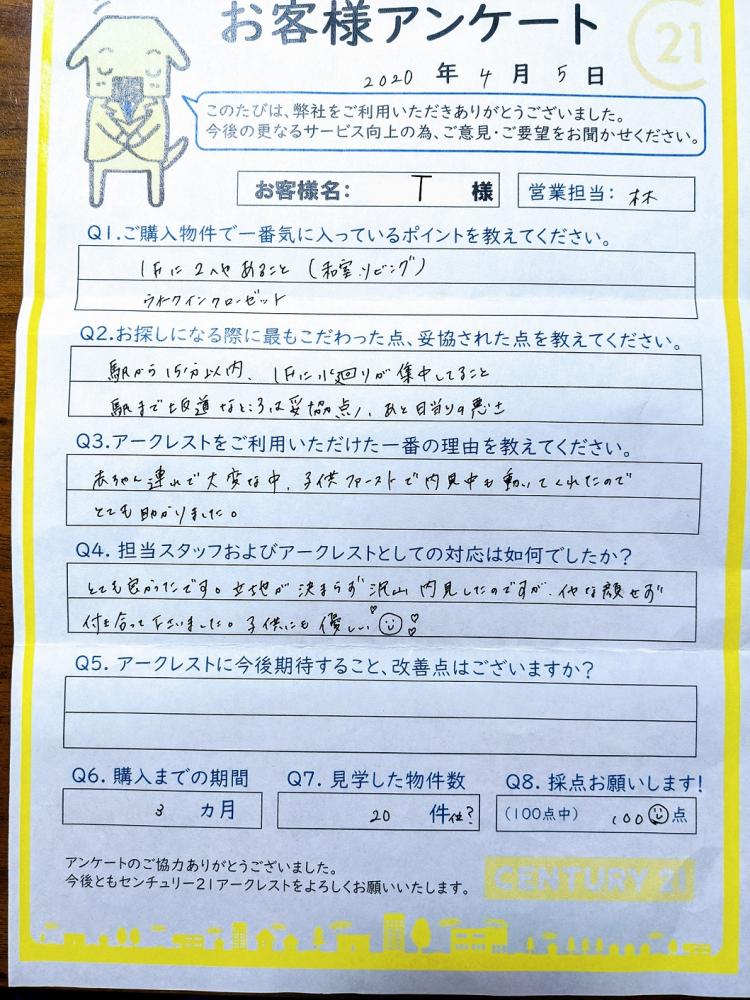 お客様アンケート
21
2020 年 4 月 5 日
このたびは、弊社をご利用いただきありがとうございました。
今後の更なるサービス向上の為、ご意見・ご要望をお聞かせください。
お客様名: T 様
営業担当: 林
Q1.ご購入物件で一番気に入っているポイントを教えてください。
1Fに2へやあること (和室、リビング)
ウォークインクローゼット
Q2.お探しになる際に最もこだわった点、妥協された点を教えてください。
駅から15分以内、1Fに水廻りが集中してること
駅まで坂道なところは妥協点、あと日当りの悪さ
Q3.アークレストをご利用いただけた一番の理由を教えてください。
赤ちゃん連れで大変な中、子供ファーストで内見中も動いてくれたので
とても助かりました。
Q4. 担当スタッフおよびアークレストとしての対応は如何でしたか?
とても良かったです。立地が決まらず沢山内見したのですが、イヤな顔せず
付き合って下さいました。子供にも優しい
Q5. アークレストに今後期待すること、改善点はございますか?
Q6. 購入までの期間
3 カ月
Q7. 見学した物件数
20 件位?
Q8. 採点お願いします!
(100点中) 100点
アンケートのご協力ありがとうございました。
今後ともセンチュリー21アークレストをよろしくお願いいたします。
CENTURY 21